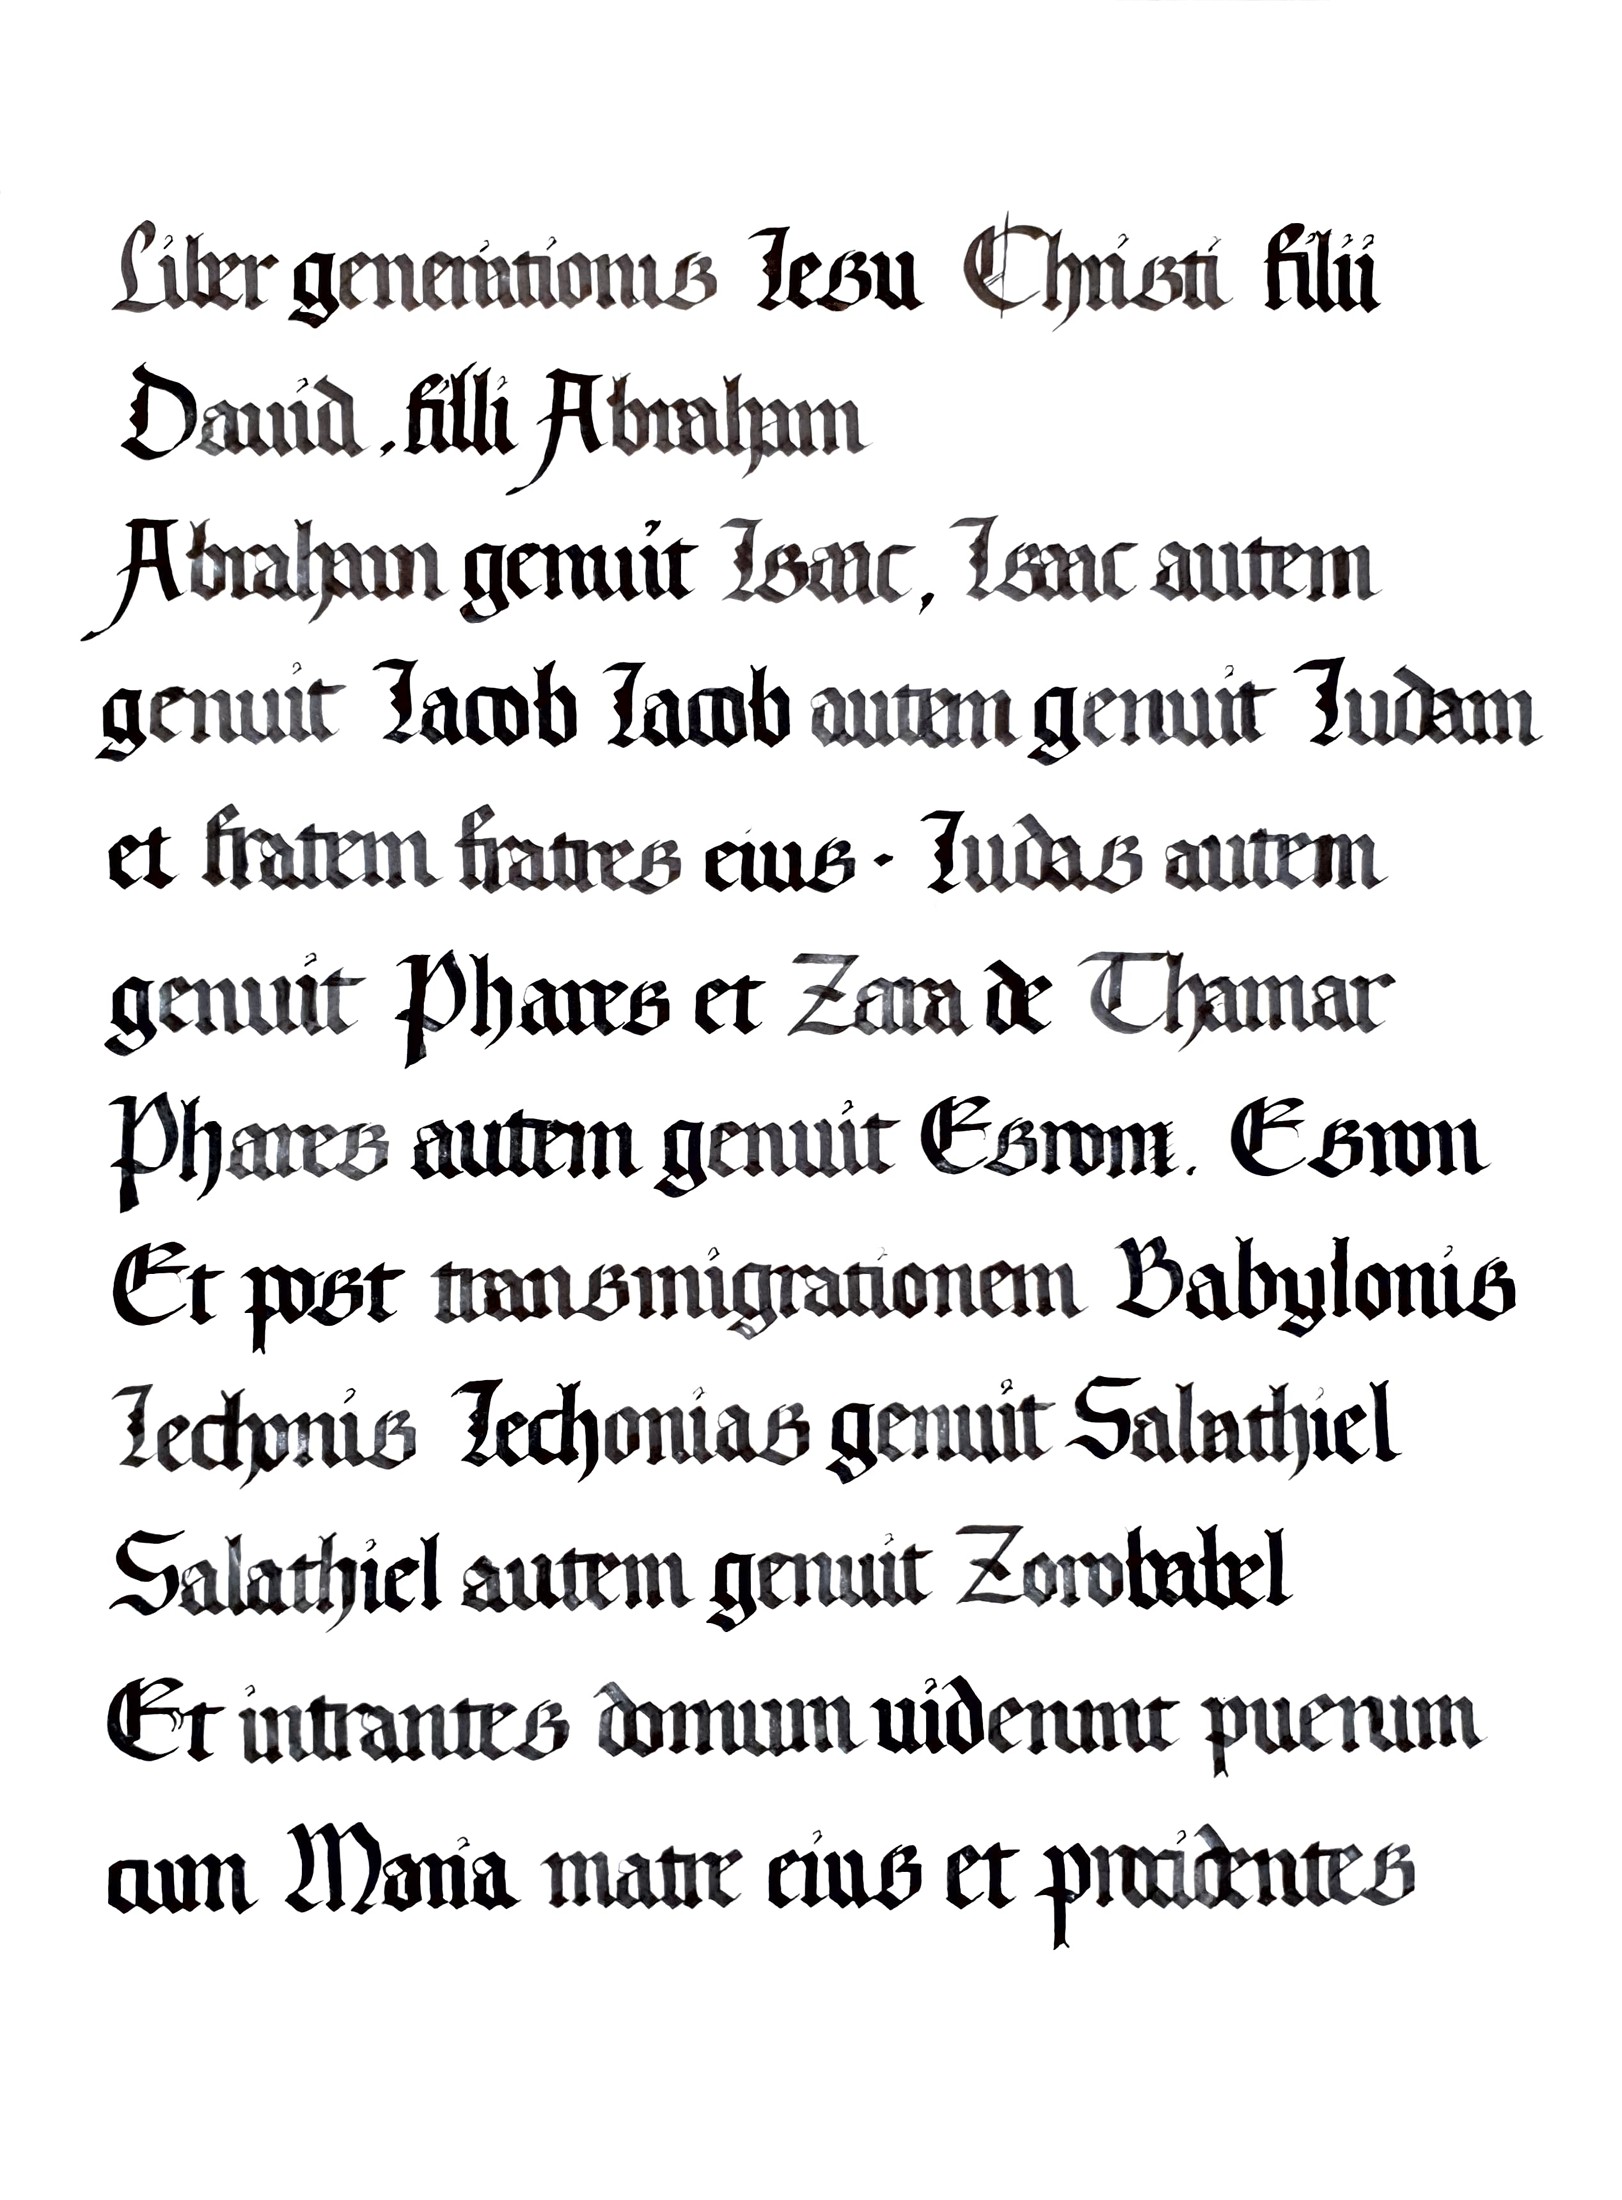 Liber generationis Iesu Christi filii
Dauid, filli Abraham
Abraham genuit Isaac, Isaac autem
genuit Iacob Iacob autem genuit Iudam
et fratem fratres eius. Iudas autem
genuit Phares et Zara de Thamar
Phares autem genuit Esrom. Esron
Et post transmigrationem Babylonis
Iechonis Iechonias genuit Salathiel
Salathiel autem genuit Zorobabel
Et intrantes domum uiderunt puerum
cum Maria matre eius et procidentes